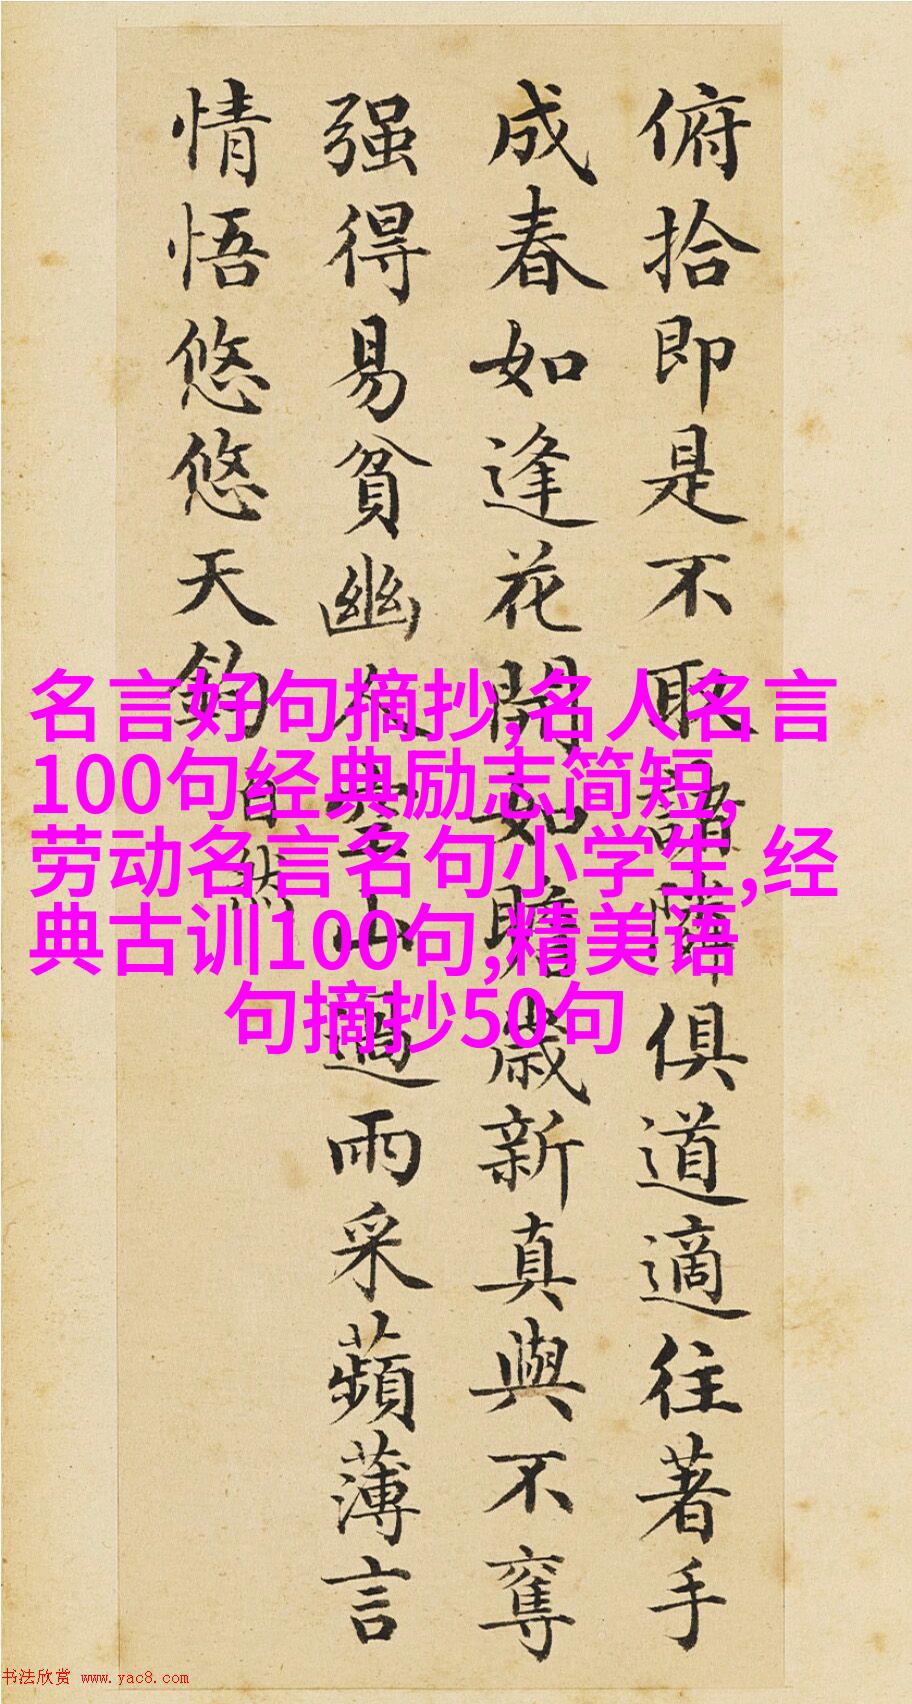 俯拾即是不取諸隣俱道適往著手
成春如逢花開如瞻歲新真與不奪
强得易貧幽人空山過雨采蘋薄言
情悟悠悠天鈞
自然
名言好句摘抄,名人名言
100句经典励志简短,
劳动名言名句小学生,经
典古训100句,精美语
句摘抄50句
书法欣赏 www.yac8.com